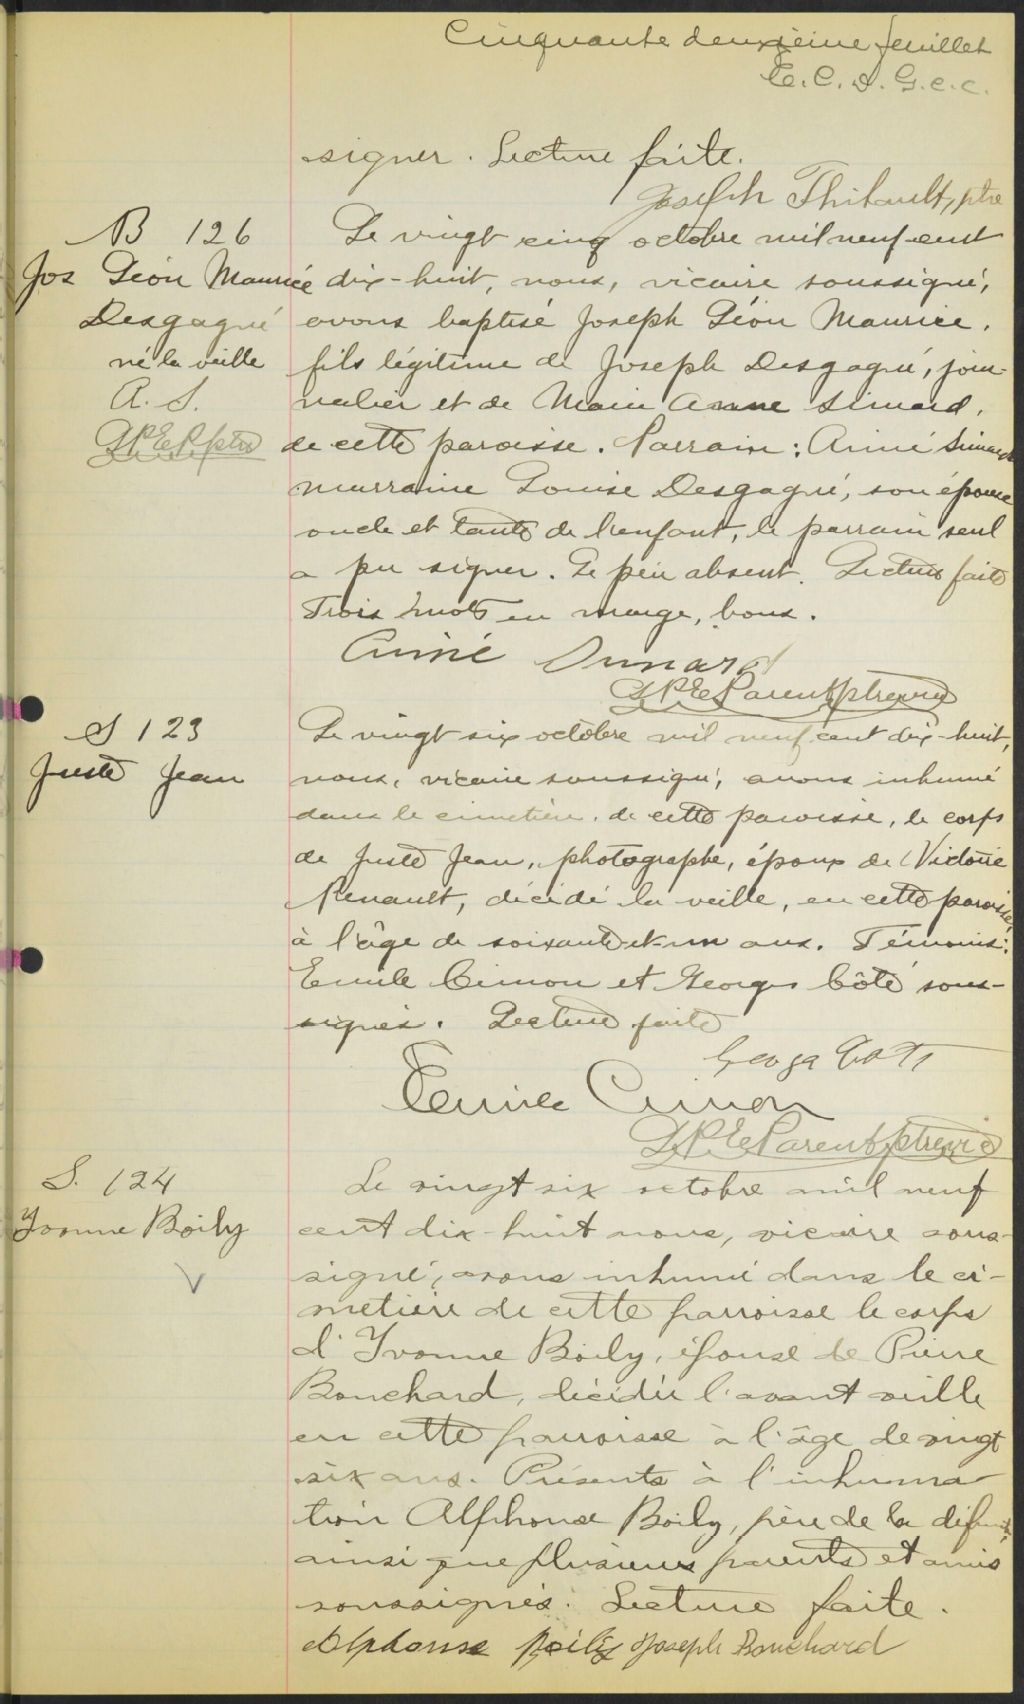 Cinquante deuxième feuillet
E.C.D.G.c.c.
signer. Lecture faite.
Joseph Thibault, ptre
B 126
Jos Léon Maurice
Desgagné
né la veille
A. S.
Le vingt cinq octobre mil neuf cent
dix-huit, nous, vicaire soussigné,
avons baptisé Joseph Léon Maurice,
fils légitime de Joseph Desgagné, jour-
nalier et de Marie Anne Simard,
de cette paroisse. Parrain: Aimé Simard
marraine Louise Desgagné, son épouse
oncle et tante de l'enfant, le parrain seul
a pu signer. Le père absent. Lecture faite
Trois mots en marge, bons.
Aimé Simard
J.P.E. Parent ptre vic
S 123
Juste Jean
Le vingt six octobre mil neuf cent dix-huit,
nous, vicaire soussigné, avons inhumé
dans le cimetière de cette paroisse, le corps
de Juste Jean, photographe, époux de Victorie
Renault, décédé la veille, en cette paroisse,
à l'âge de soixante et un ans. Témoins:
Emile Cimon et Georges Côté sous-
signés. Lecture faite
George Coté
Emile Cimon
J.P.E. Parent ptre vic
S. 124
Yvonne Boily
Le vingt six octobre mil neuf
cent dix-huit nous, vicaire sous-
signé, avons inhumé dans le ci-
metière de cette parroisse le corps
d'Yvonne Boily, épouse de Pierre
Bouchard, décédée l'avant veille
en cette parroisse à l'âge de vingt
six ans. Présents à l'inhuma
tion Alphonse Boily, père de la défunte,
ainsi que plusieurs parents et amis
soussignés. Lecture faite.
Alphonse Boily Joseph Bouchard